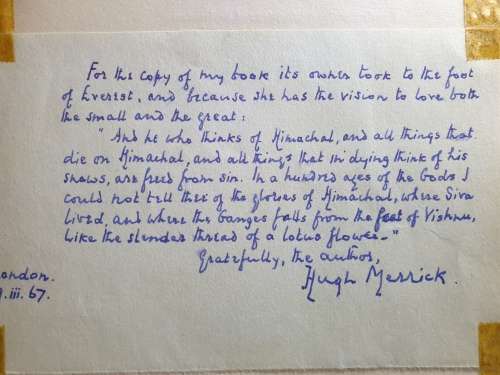 For the copy of my book its owner took to the foot
of Everest, and because she has the vision to love both
the small and the great:
"And he who thinks of Himachal, and all things that
die on Himachal, and all things that in dying think of his
snows, are freed from sin. In a hundred ages of the Gods I
could not tell thee of the glories of Himachal, where Siva
lived, and where the Ganges falls from the feet of Vishnu,
like the slender thread of a lotus flower."
Gratefully, the author,
Hugh Merrick.
London.
.iii.67.